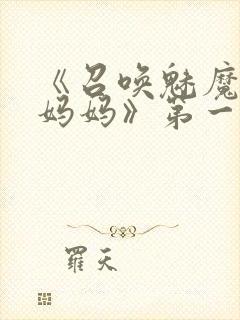 《召唤魅魔
妈妈》第一
羅天